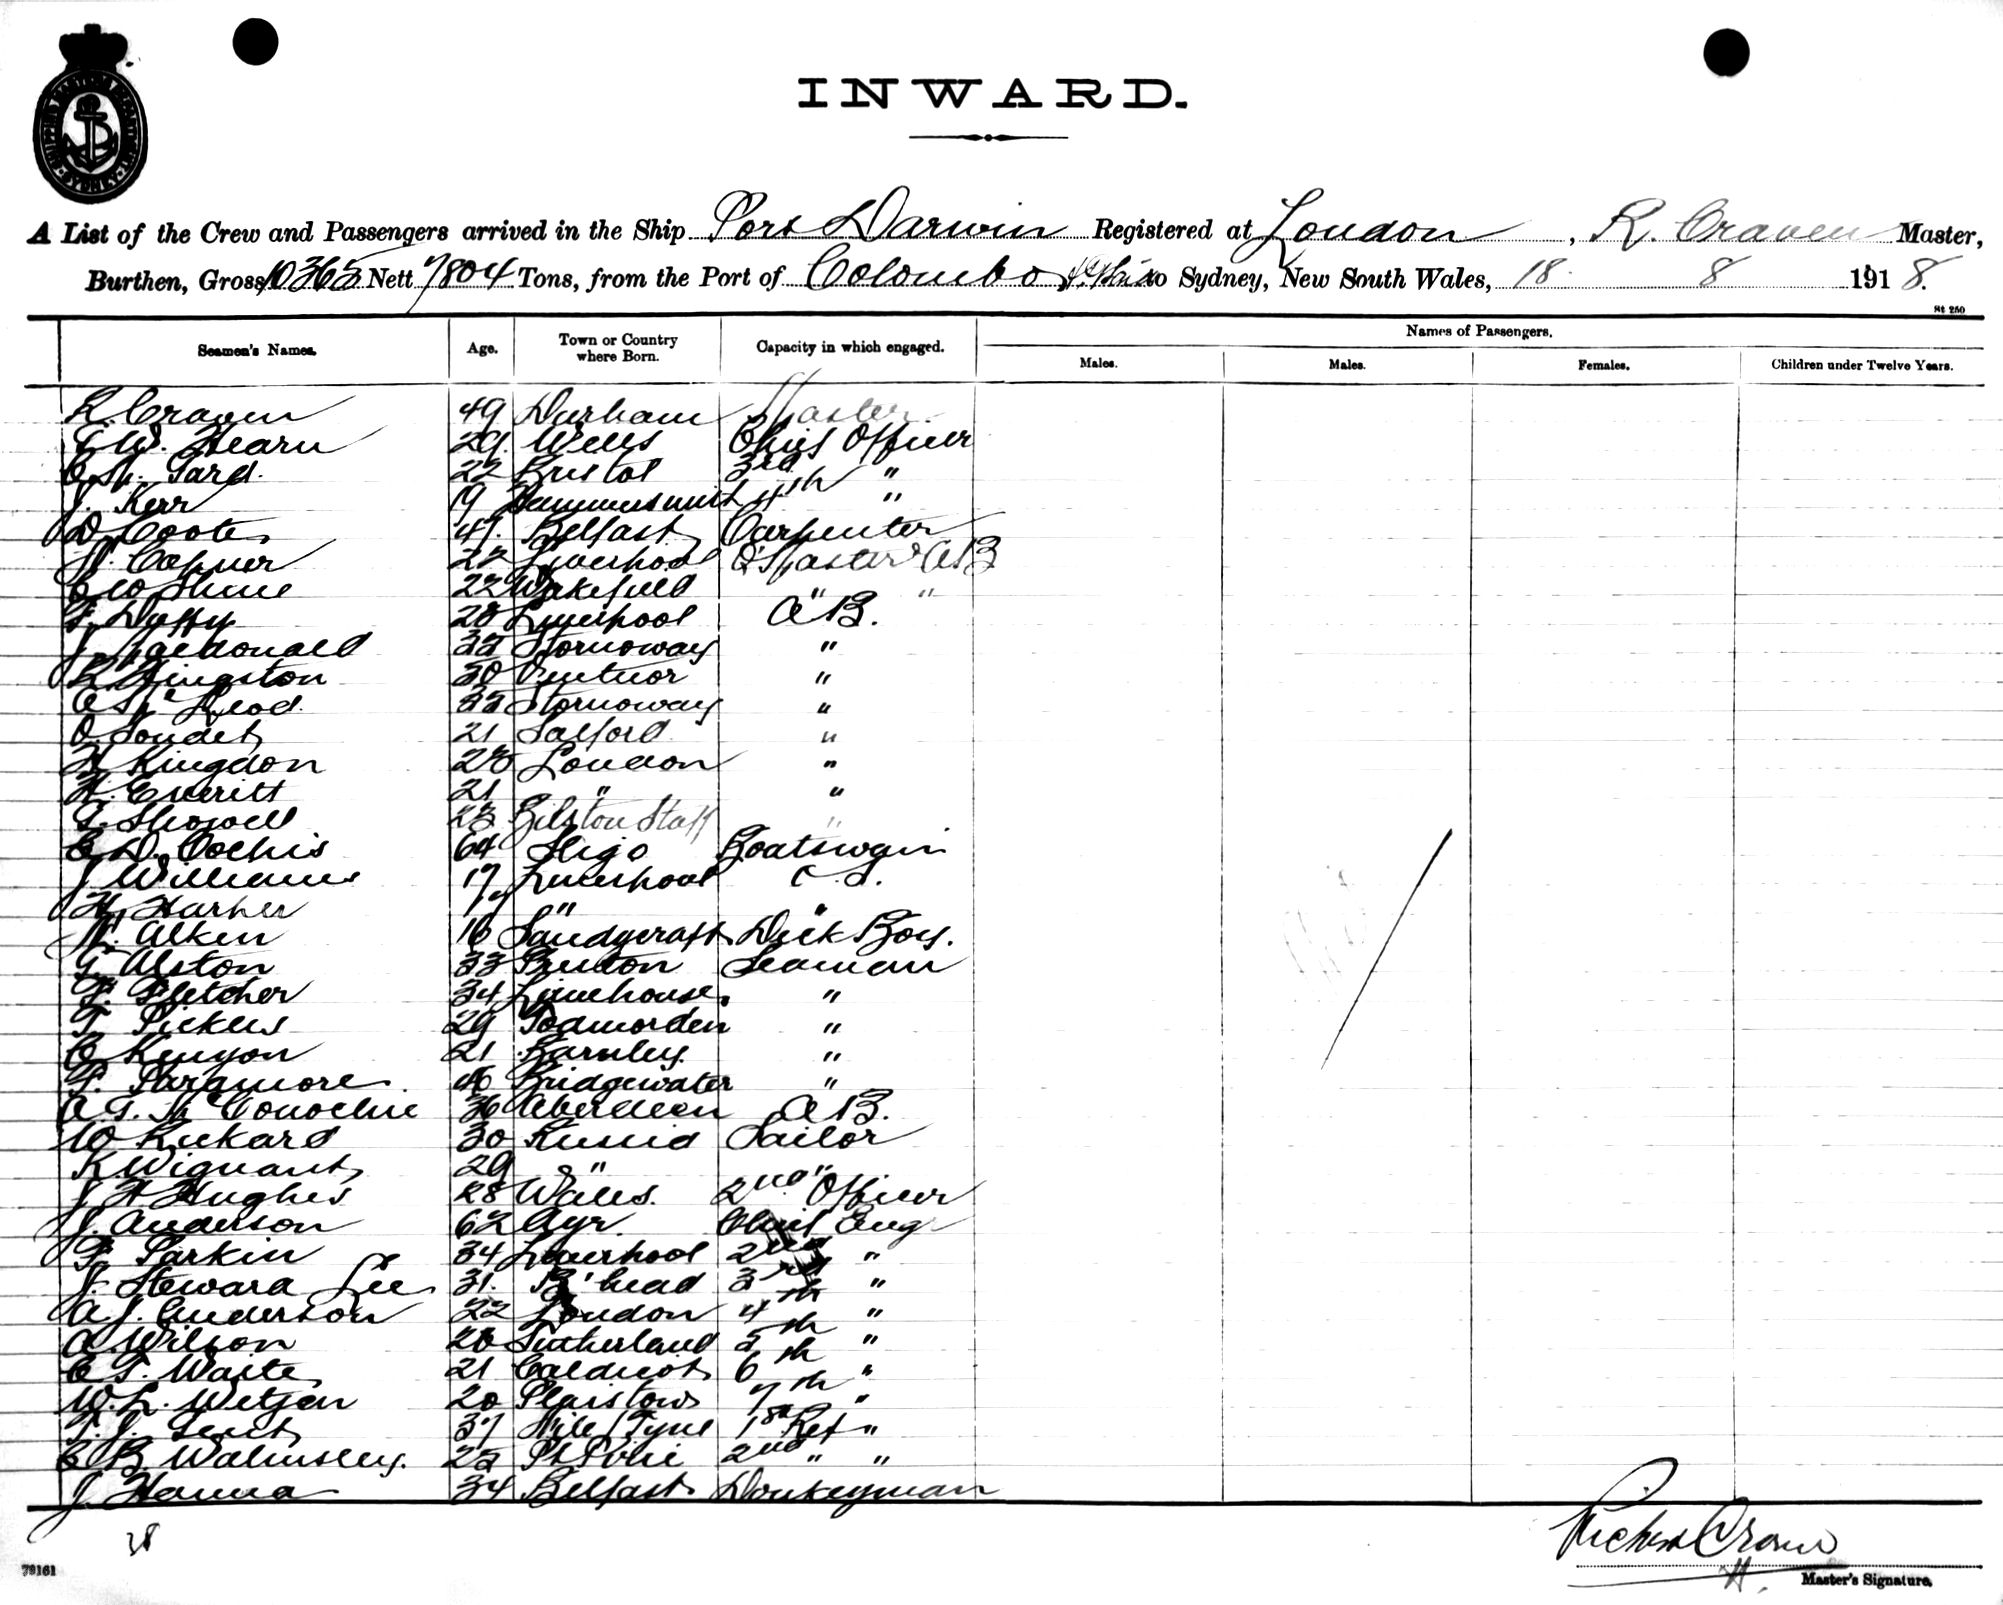 INWARD.
SYDNEY
A List of the Crew and Passengers arrived in the Ship Port Darwin Registered at London, R. Craven Master,
Burthen, Gross 10365 Nett 7804 Tons, from the Port of Colombo to Sydney, New South Wales, 18 8 1918.
St 250
Seamen's Names. Age. Town or Country where Born. Capacity in which engaged. Names of Passengers.
Males. Males. Females. Children under Twelve Years.
R. Craven 49 Durham Master
W. Hearn 29. Wells Chief Officer
Gard. 22 Bristol 3rd "
J. Kerr 19 Hammersmith 4th "
D. Coote 47. Belfast Carpenter
Liverpool Q'Master & AB
C W Shine 22 Wakefield " "
F. Duffy 28 Liverpool AB.
J. Macdonald Stornoway "
R. Kingston 30 Ventnor "
A McLeod. Stornoway "
21 Salford "
H Kingdon 28 London "
H. Everitt 21 " "
Showell 23 Bilston Staff "
D. 64 Sligo Boatswain
J Williams 17 Liverpool O.S.
H. Harper 17 " "
Aiken 16 Sandycraft Deck Boy.
Alston 33 Preston Seaman
F. Fletcher 34 Limehouse. "
T. Pickles 29 Todmorden "
C Kenyon 21 Barnley. "
F. Paramore. 46 Bridgewater "
A G. McConochie 36 Aberdeen AB.
W Rickard 30 Russia Sailor
K Wignant 29 " "
J H Hughes 28 Wales. 2nd Officer
J. Anderson 62 Ayr. Chief Eng
F. Parkin 34 Liverpool 2nd "
J. Steward Lee 31. B'head 3rd "
A. J. Anderson 22 London 4th "
A Wilson 26 Sutherland 5th "
C T. Waite 21 Caldicot 6th "
W. L. Wetjen 20 Plaistow 7th "
T. J. Tent 37 Tyne 1st Ref "
C B. Walmsley. 2nd " "
J. Hanna 34 Belfast Donkeyman
38
Richard Craven
79161
Master's Signature.